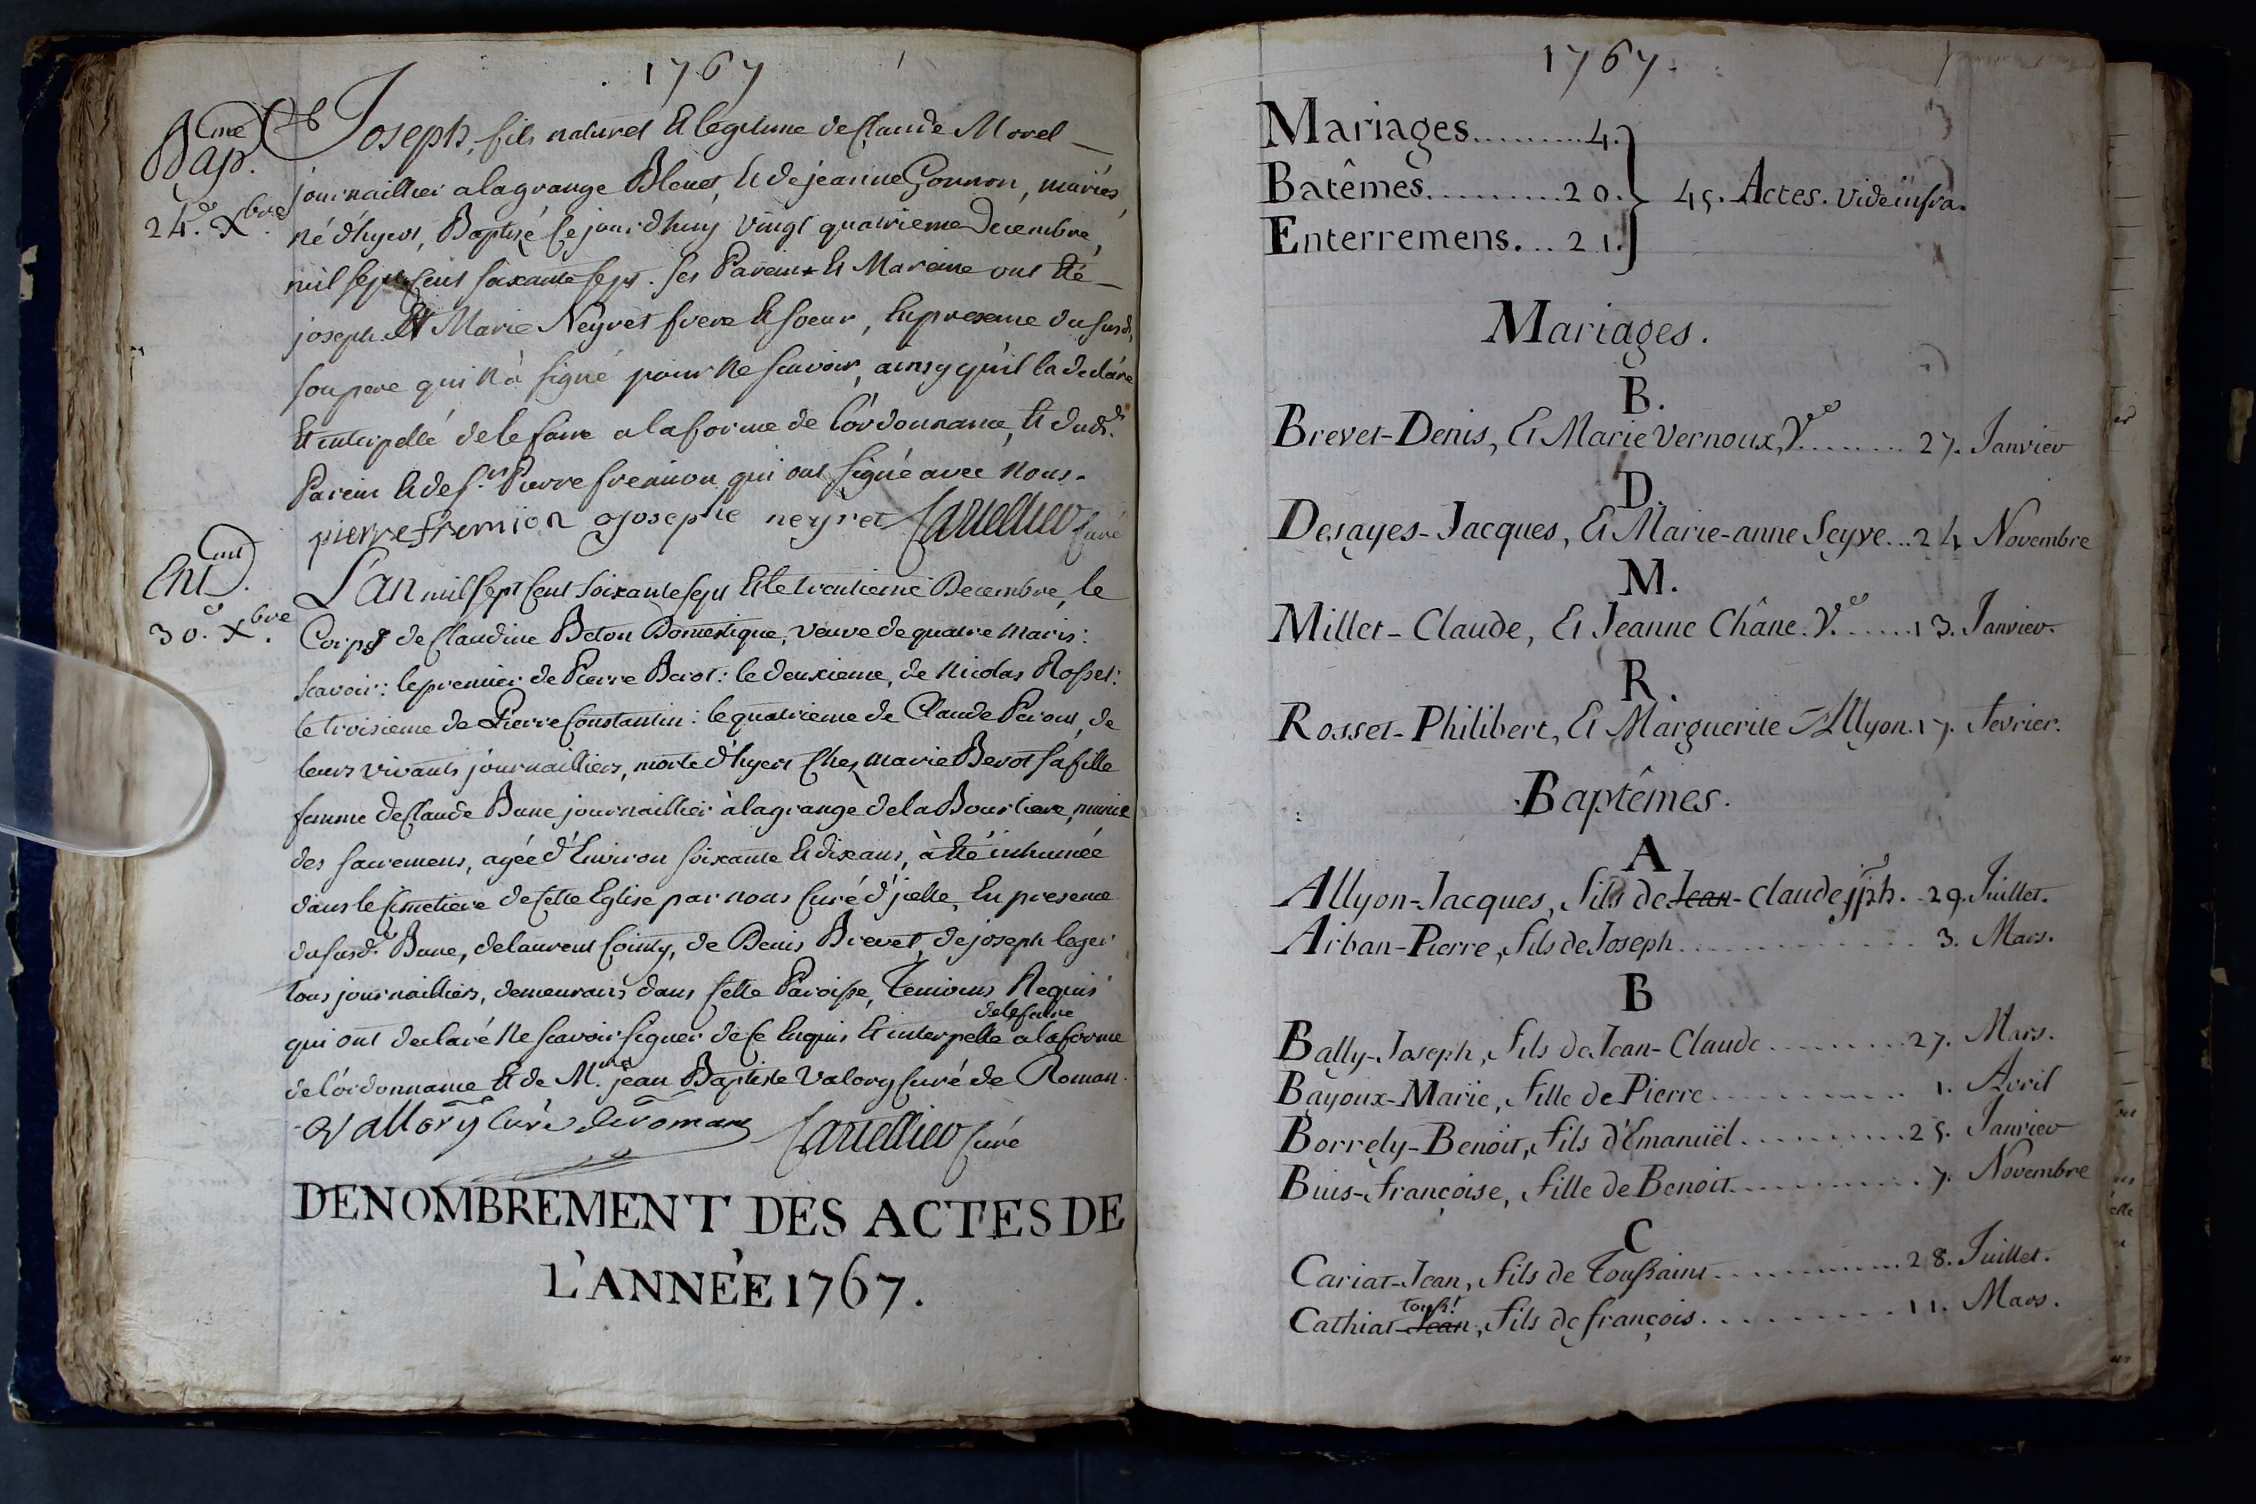 1767
Bap.me
24.e Xbre
Joseph, fils naturel et legitime de Claude Morel
journaillier a la grange Bleuet, et de jeanne Gonnon, mariés,
né d'hyers, Baptisé ce jourdhuy vingt quatrieme Decembre,
mil sept Cent soixante sept. ses Parein et Mareine ont eté
joseph et Marie Neyret frere et soeur, en presence du susd.
son pere qui n'à signé pour ne scavoir, ainsy qu'il la declaré
et interpellé de le faire a la forme de l'ordonnance, et dud.
Parein et de sr. Pierre fremion qui ont signé avec nous.
pierre fremion josephe neyret Cartellier Curé
Ent.
30.e Xbre
L'an mil sept Cent soixante sept et le trentieme Decembre, le
Corps de Claudine Beton Domestique, veuve de quatre maris:
scavoir: le premier de Pierre Berot: le deuxieme, de Nicolas Rosset:
le troisieme de Pierre Constantin: le quatrieme de Claude Peront, de
leurs vivants journailliers, morte d'hyers Chez marie Berot sa fille
femme de Claude Bune journaillier à la grange de la Bourliere, munie
des sacremens, agée d'Environ soixante et dix ans, à eté inhumée
dans le Cimetiere de Cette Eglise par nous Curé d'jcelle, En presence
du susd. Bune, de laurent Cointy, de Denis Brevet, de joseph leger
tous journailliers, demeurans dans Cette Paroisse, Temoins Requis
de le faire
qui ont declaré ne scavoir signer de Ce Enquis et interpellé a la forme
de l'ordonnance et de Mre. jean Baptiste Valory Curé de Roman.
Vallory Curé de roman Cartellier Curé
DENOMBREMENT DES ACTES DE
L'ANNÉE 1767.
1767.
Mariages..........4.
Batêmes..........20. 45. Actes. vide infra.
Enterremens....21.
Mariages.
B.
Brevet-Denis, Et Marie Vernoux, Ve........ 27. Janvier
D.
Desayes-Jacques, Et Marie-anne Seyve...24 Novembre
M.
Millet-Claude, Et Jeanne Châne. Ve.......13. Janvier.
R.
Rosset-Philibert, Et Marguerite Allyon. 17. fevrier.
Baptêmes.
A
Allyon-Jacques, fils de Jean-Claude jph. .29. Juillet.
Arban-Pierre, fils de Joseph.............. 3. Mars.
B
Bally-Joseph, fils de Jean-Claude.........27. Mars.
Bayoux-Marie, fille de Pierre............ 1. Avril
Borrely-Benoit, fils d'Emanuël..........25. Janvier
Buis-françoise, fille de Benoit............7. Novembre
C
Cariat-Jean, fils de Toussaint............28. Juillet.
touss.t
Cathiat-Jean, fils de françois...........11. Mars.